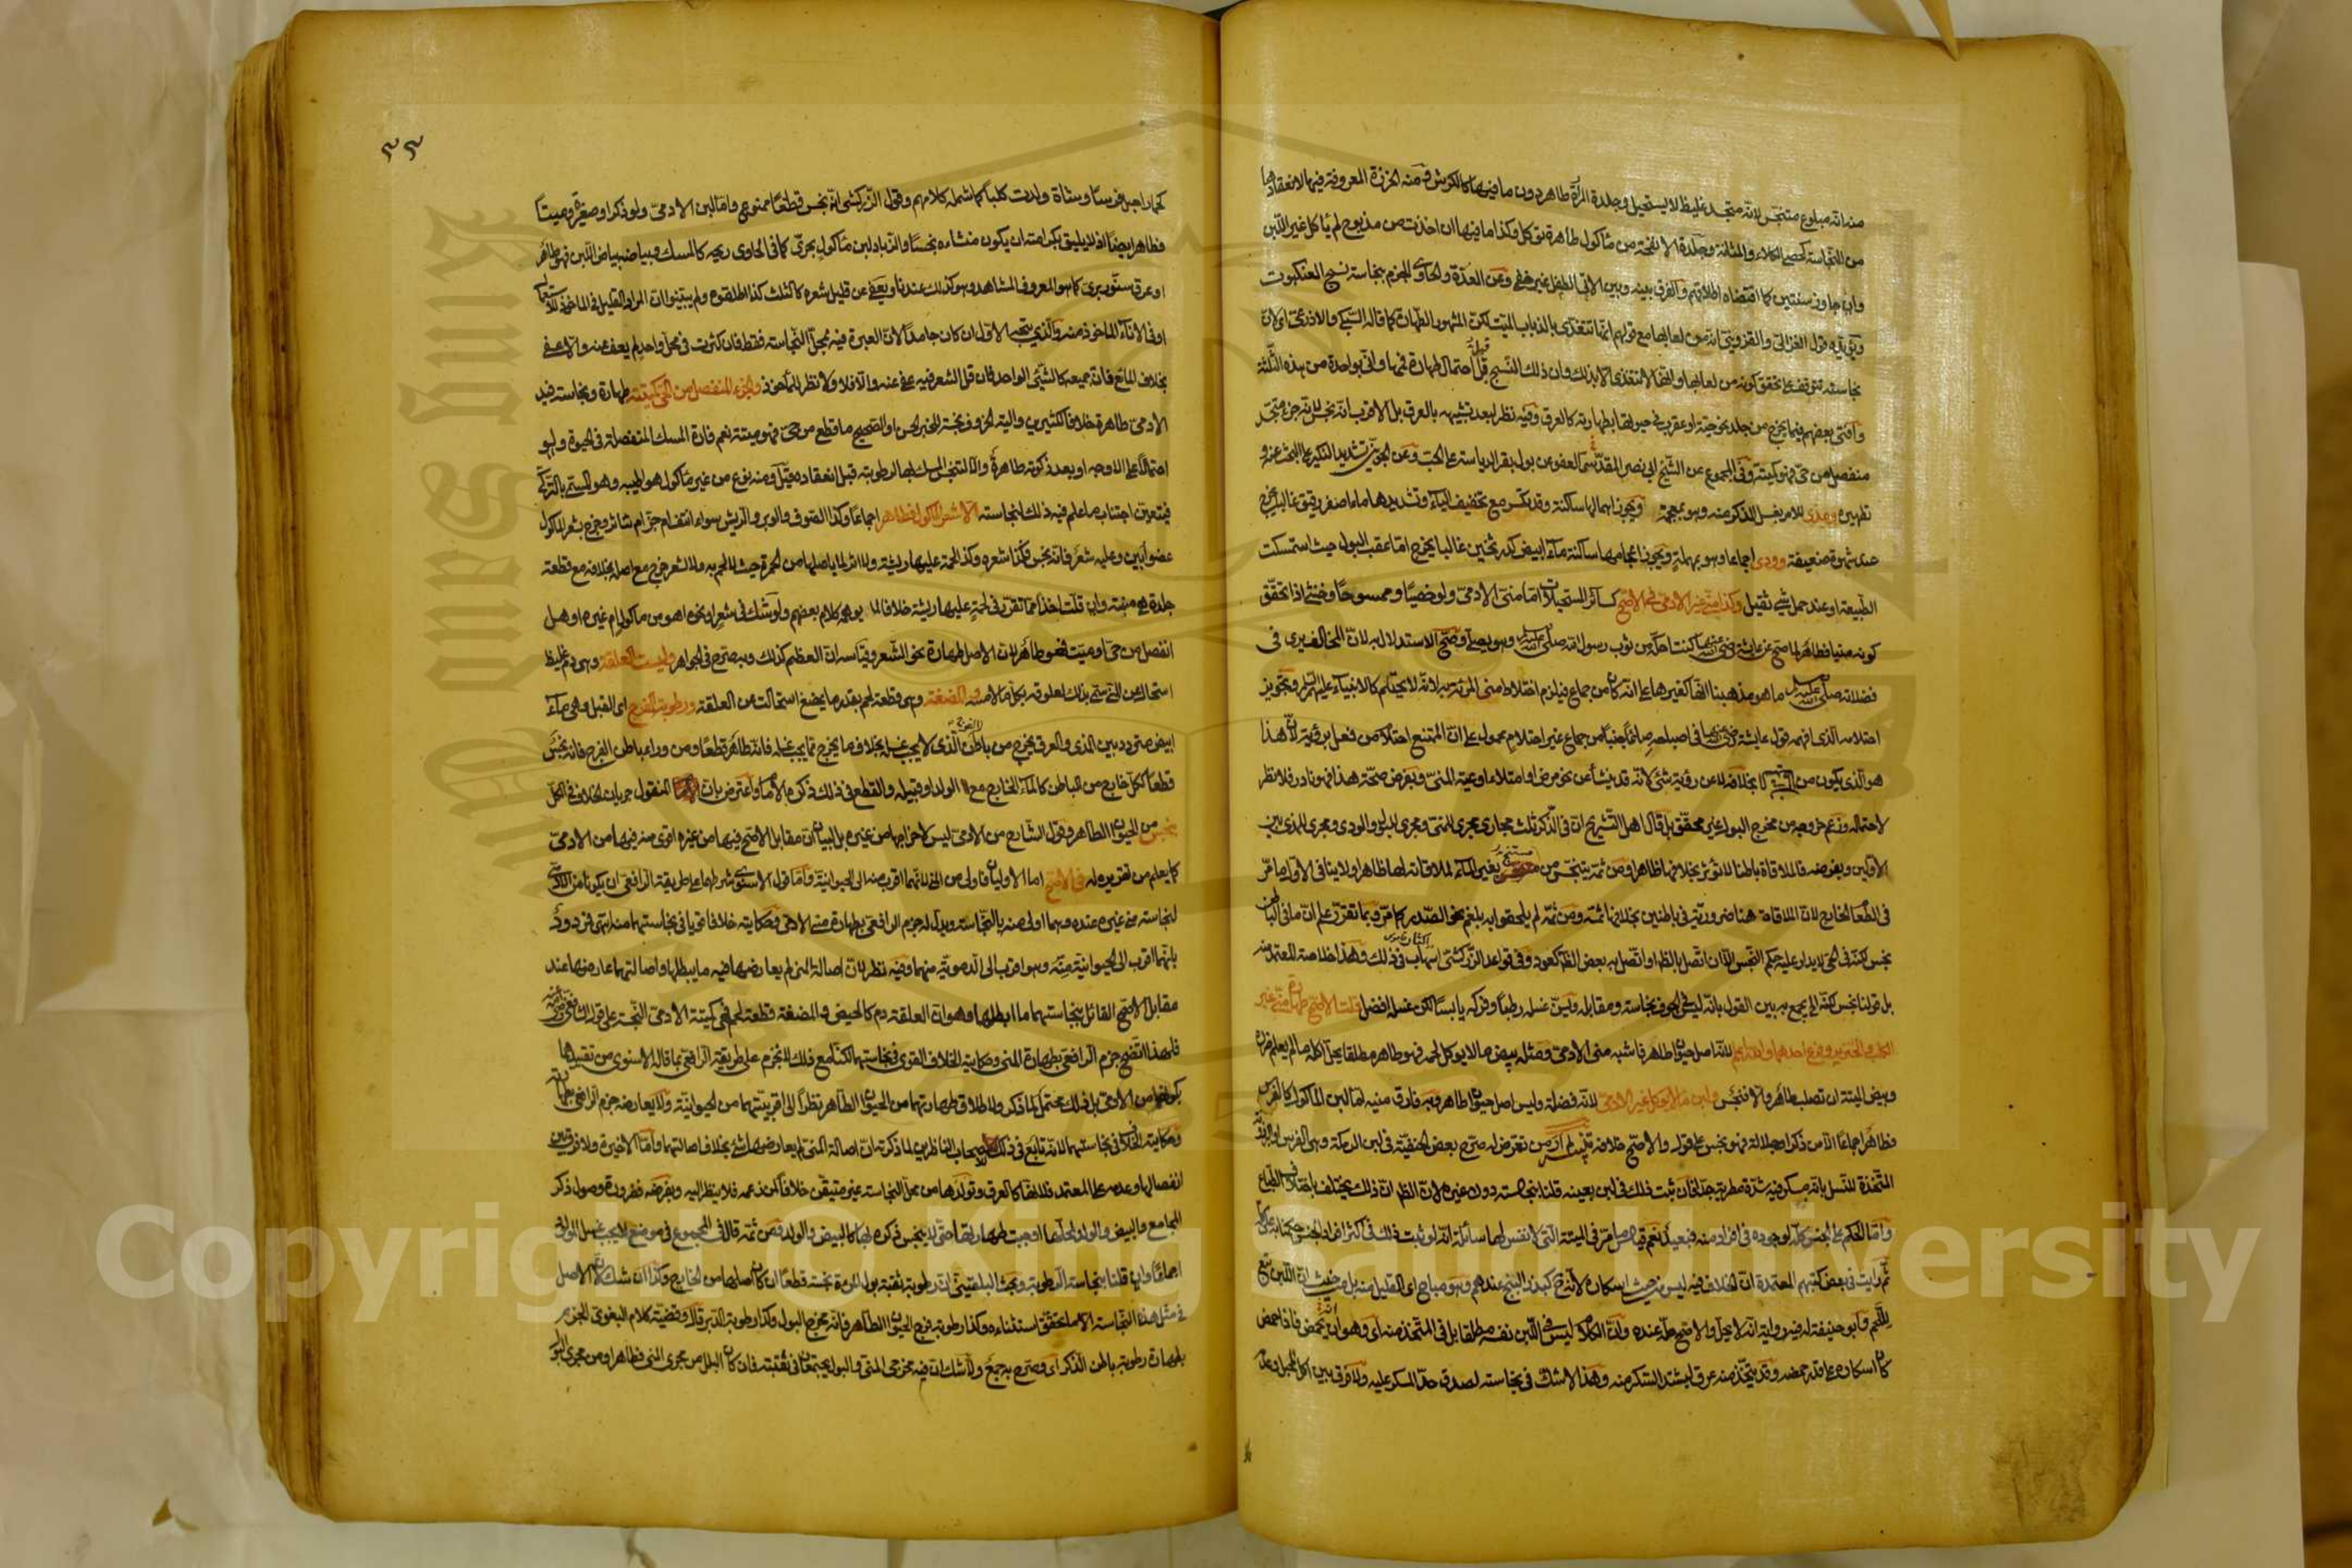 منه انه مبلوع متنجس لانه متجسد غليظ لا يستحيل وجلدة المرة طاهرة دون ما فيها كالكرش ومنه الخرزة المعروفة فيها لانعقادها
من النجاسة كحصى الكلاء والمثانة وجلدة الانفحة من مأكول طاهرة تؤكل وكذا ما فيها ان اخذت من مذبوح لم يأكل غير اللبن
وان جاوز سنتين كما اقتضاه اطلاقهم والفرق بينه وبين الاتي الطفل غير خفي وعن العدة والحاوي الجزم بنجاسة نسج العنكبوت
ويؤيده قول الغزالي والقزويني انه من لعابها مع قولهم انها تتغذى بالذباب الميت لكن المشهور الطهارة كما قاله السبكي والاذرعي اي لان
نجاسته تتوقف على تحقق كونه من لعابها وانها لا تتغذى الا بذلك وان ذلك النسج قبل احتمال طهارة فمها واني بواحدة من هذه الثلثة
وافتى بعضهم فيما يخرج من جلد نحو حية او عقرب في حيوتها بطهارته كالعرق وفيه نظر لبعد تشبيهه بالعرق بل الاقرب انه نجس لانه جزء متجسد
منفصل من حي فهو كميتته وفي المجموع عن الشيخ ابي نصر المقدسي العفو عن بول بقر الدياسة على الحب وعن الجويني تشديد النكير على البحث عنه و
تطهيره ومذي للامر بغسل الذكر منه وهو بمعجمة ويجوز اهمالها ساكنة وقد تكسر مع تخفيف الياء وتشديدها ماء اصفر رقيق غالبا يخرج
عند شهوة ضعيفة وودي اجماعا وهو بمهملة ويجوز اعجامها ساكنة ماء ابيض كدر ثخين غالبا يخرج اما عقب البول حيث استمسكت
الطبيعة او عند حمل شيء ثقيل وكذا مني غير الادمي في الاصح كسائر المستحيلات اما مني الادمي ولو خصيا وممسوحا وخنثى اذا تحقق
كونه منيا فطاهر لما صح عن عائشة رضي الله عنها كنت احكه من ثوب رسول الله صلى الله عليه وسلم وهو يصلي وصح الاستدلال به لان المخالف يرى في
فضلاته صلى الله عليه وسلم ما هو مذهبنا انها كغيرها على انه كان من جماع فيلزم اختلاط مني المرأة به لانه لا يحتلم كالانبياء عليهم السلام وتجويز
احتلامه الذي افهمه قول عائشة رضي الله عنها في اصبح صائما جنبا من جماع غير احتلام محمول على ان الممتنع احتلام من فعل برؤية لان هذا
هو الذي يكون من الشيطان بخلافه لا عن رؤية شيء لانه قد ينشأ عن نحو مرض او امتلاء اوعية المني وبفرض صحة هذا فهو نادر فلا نظر
لاحتماله وزعم خروجه من مخرج البول غير محقق بل قال اهل التشريح ان في الذكر ثلث مجاري مجرى للمني ومجرى للبول والودي ومجرى للمذي بين
الاولين وبفرضه فالملاقاة باطنا لا تؤثر بخلافها ظاهرا ومن ثمه يتنجس من مستنجي بغير الماء لملاقاته لها ظاهرا ولا ينافي الاول ما مر
في الطعام الخارج لان الملاقاة هنا ضرورية في باطنين بخلافها ثمة ومن ثمه لم يلحقوا به بلغم نحو الصدر كما مر وبما تقرر علم ان ما في الباطن
نجس لكنه في الحي لا يدار عليه حكم النجس الا ان اتصل بالظاهر او اتصل به بعض الظاهر كعود وفي قواعد الزركشي اسهاب في ذلك وهذا خلاصة المعتمد منه
بل قولنا نجس لكنه الخ يجمع به بين القول بانه ليس في الجوف نجاسة ومقابله ويسن غسله رطبا وفركه يابسا لكن غسله افضل قلت الاصح طهارة مني غير
الكلب والخنزير وفرع احدهما والله اعلم لانه اصل حيوان طاهر فاشبه مني الادمي ومثله بيض ما لا يؤكل لحمه فهو طاهر مطلقا يحل اكله ما لم يعلم ضرره
وبيض الميتة ان تصلب طاهر والا فنجس ولبن ما لا يؤكل غير الادمي لانه فضلة وليس اصل حيوان طاهر وبه فارق منيه اما لبن المأكول كالفرس
فطاهر اجماعا الا من ذكر او جلالة فهو نجس على قول والاصح خلافه تنبيه لم ار من تعرض له صرح بعض الحنفية في لبن الرمكة وهي الفرس او البرذونة
المتخذة للنسل بانه مسكر فيه شدة مطربة جدا فان ثبت ذلك في لبن بعينه قلنا بنجاسته دون غيره لان الظاهر ان ذلك يختلف باختلاف الطباع
واما الحكم على الجنس كله لوجوده في افراد منه فبعيد نعم قياس ما مر في الميتة التي لا نفس لها سائلة انه لو ثبت ذلك في اكثر افراد الجنس حكمنا به على كله
ثم رايت في بعض كتبهم المعتمدة ان الخلاف فيه ليس من حيث اسكاره لانه كبذر البنج عندهم وهو مباح اي القليل منه بل من حيث ان اللبن تبع
للحم وابو حنيفة له فيه رواية انه لا يحل والاصح حله عنده ولان الكلام ليس في اللبن نفسه مطلقا بل في المتخذ منه اي وهو انه يحمض فاذا حمض
كان اسكاره على قدر حمضه وقد يتخذ منه عرق ليشتد السكر منه وهذا لا شك في نجاسته لصدق حد المسكر عليه ولا فرق بين
٣٣
كحمار احبل فرسا وشاة ولدت كلبا كما شمله كلامهم وقول الزركشي انه نجس قطعا ممنوع واما لبن الادمي ولو ذكرا وصغيرة وميتا
فطاهر ايضا اذ لا يليق بكرامته ان يكون منشاءه نجسا والزباد لبن مأكول بحري كما في الحاوي ريحه كالمسك وبياضه بياض اللبن فهو طاهر
او عرق سنور بري كما هو المعروف المشاهد وهو كذلك عندنا ويعفى عن قليل شعره كالثلث كذا اطلقوه ولم يبينوا ان المراد القليل في المأخوذ للاستعمال
او في الاناء المأخوذ منه والذي يتجه الاول ان كان جامدا لان العبرة فيه بمحل النجاسة فقط فان كثرت في محل واحد لم يعف عنه والا عفي
بخلاف المائع فان جميعه كالشيء الواحد فان قل الشعر فيه عفي عنه والا فلا ولا نظر للمأخوذ والجزء المنفصل من الحي كميتته طهارة ونجاسة فيد
الادمي طاهرة خلافا لكثيرين والية الخروف نجسة للخبر الحسن او الصحيح ما قطع من حي فهو ميتة نعم فارة المسك المنفصلة في الحيوة ولو
احتمالا على الاوجه او بعد ذكوته طاهرة والا لتنجس المسك لها لرطوبته قبل انعقاده قيل ومنه نوع من غير مأكول هو اطيبه وهو المسمى بالتركي
فيتعين اجتناب ما علم فيه ذلك لنجاسته الا شعر المأكول فطاهر اجماعا وكذا الصوف والوبر والريش سواء انتتف ام جز ام تناثر وخرج بشعر المأكول
عضو ابين وعليه شعر فانه نجس وكذا شعره وكذا لحمة عليها ريشة ولا اثر لما باصلها من الحمرة حيث لا لحم به ولا لشعر خرج مع اصله بخلافه مع قطعة
جلدة هي منبته وان قلت اخذا مما تقرر في لحمة عليها ريشة خلافا لما يوهمه كلام بعضهم ولو شك في شعر او نحوه اهو من مأكول ام غيره او هل
انفصل من حي او ميت فهو طاهر لان الاصل طهارة نحو الشعر وقياسه ان العظم كذلك وبه صرح في الجواهر وليست العلقة وهي دم غليظ
استحال عن المني سمي بذلك لعلوقه بكل ما لامسه والمضغة وهي قطعة لحم بقدر ما يمضغ استحالت عن العلقة ورطوبة الفرج اي القبل وهي ماء
ابيض متردد بين المذي والعرق يخرج من باطن الفرج الذي لا يجب غسله بخلاف ما يخرج مما يجب غسله فانه طاهر قطعا ومن وراء باطن الفرج فانه نجس
قطعا ككل خارج من الباطن كالماء الخارج مع الولد او قبيله والقطع في ذلك ذكره الامام واعترض بان المنقول جريان الخلاف في الكل
بنجس من الحيوان الطاهر وقول الشارح من الادمي ليس لاخراجها من غيره بل لبيان ان مقابل الاصح فيها من غيره اقوى منه فيها من الادمي
كما يعلم من تقريره له في الاصح اما الاوليان فاولى من المني لانهما اقرب منه الى الحيوانية واما قول الاسنوي شرطهما على طريقة الرافعي ان يكونا من الادمي
لنجاسة مني غيره عنده وهما اولى منه بالنجاسة ويدل له جزم الرافعي بطهارة مني الادمي وحكايته خلافا قويا في نجاستهما منه انتهى فمردود
بانهما اقرب الى الحيوانية منه وهو اقرب الى الدموية منهما وفيه نظر لان اصالة المني لم يعارضها فيه ما يبطلها واصالتهما عارضها عند
مقابل الاصح القائل بنجاستهما ما ابطلها وهو ان العلقة دم كالحيض والمضغة قطعة لحم فهي كميتة الادمي النجسة على قول
فلهذا اتضح جزم الرافعي بطهارة المني وحكايته الخلاف القوي في نجاستهما لكنا مع ذلك لا نجزم على طريقة الرافعي بما قاله الاسنوي من تقييدهما
بكونهما من الادمي بل ذلك محتمل لما ذكر ولاطلاق طهارتهما من الحيوان الطاهر نظرا الى اقربيتهما من الحيوانية ولا يعارضه جزم الرافعي بطهارته
وحكايته الخلاف في نجاستهما لانه تابع في ذلك للاصحاب الناظرين لما ذكرته ان اصالة المني لم يعارضها شيء بخلاف اصالتهما واما الاخيرة ولا فرق بين
انفصالها وعدمه على المعتمد فلانها كالعرق وتولدها من محل النجاسة غير متيقن خلافا لمن زعمه فلا ينظر اليه وبفرضه فضرورة وصول ذكر
المجامع والبيض والولد لمحلها اوجبت طهارتها حتى لا يتنجس ذكره بها كالبيض والولد ومن ثمه قال في المجموع في موضع لا يجب غسل المولود
اجماعا وان قلنا بنجاسة الرطوبة وبحث البلقيني ان رطوبة ثقبة بول المرأة نجسة قطعا ان كان اصلها من الخارج وكذا ان شك لان الاصل
في مثل هذا النجاسة الا ما تحقق استثناءه وكذا رطوبة فرج الحيوان الطاهر فانه مخرج البول وكذا رطوبة الدبر قال وقضية كلام البغوي الجزم
بطهارة رطوبة باطن الذكر اي وصرح به جمع ولا شك ان فيه مخرجي المني والبول يجتمعان في ثقبته فان كان البلل من مجرى المني فطاهر او من مجرى البول
Copyright © King Saud University
King Saud University
1957